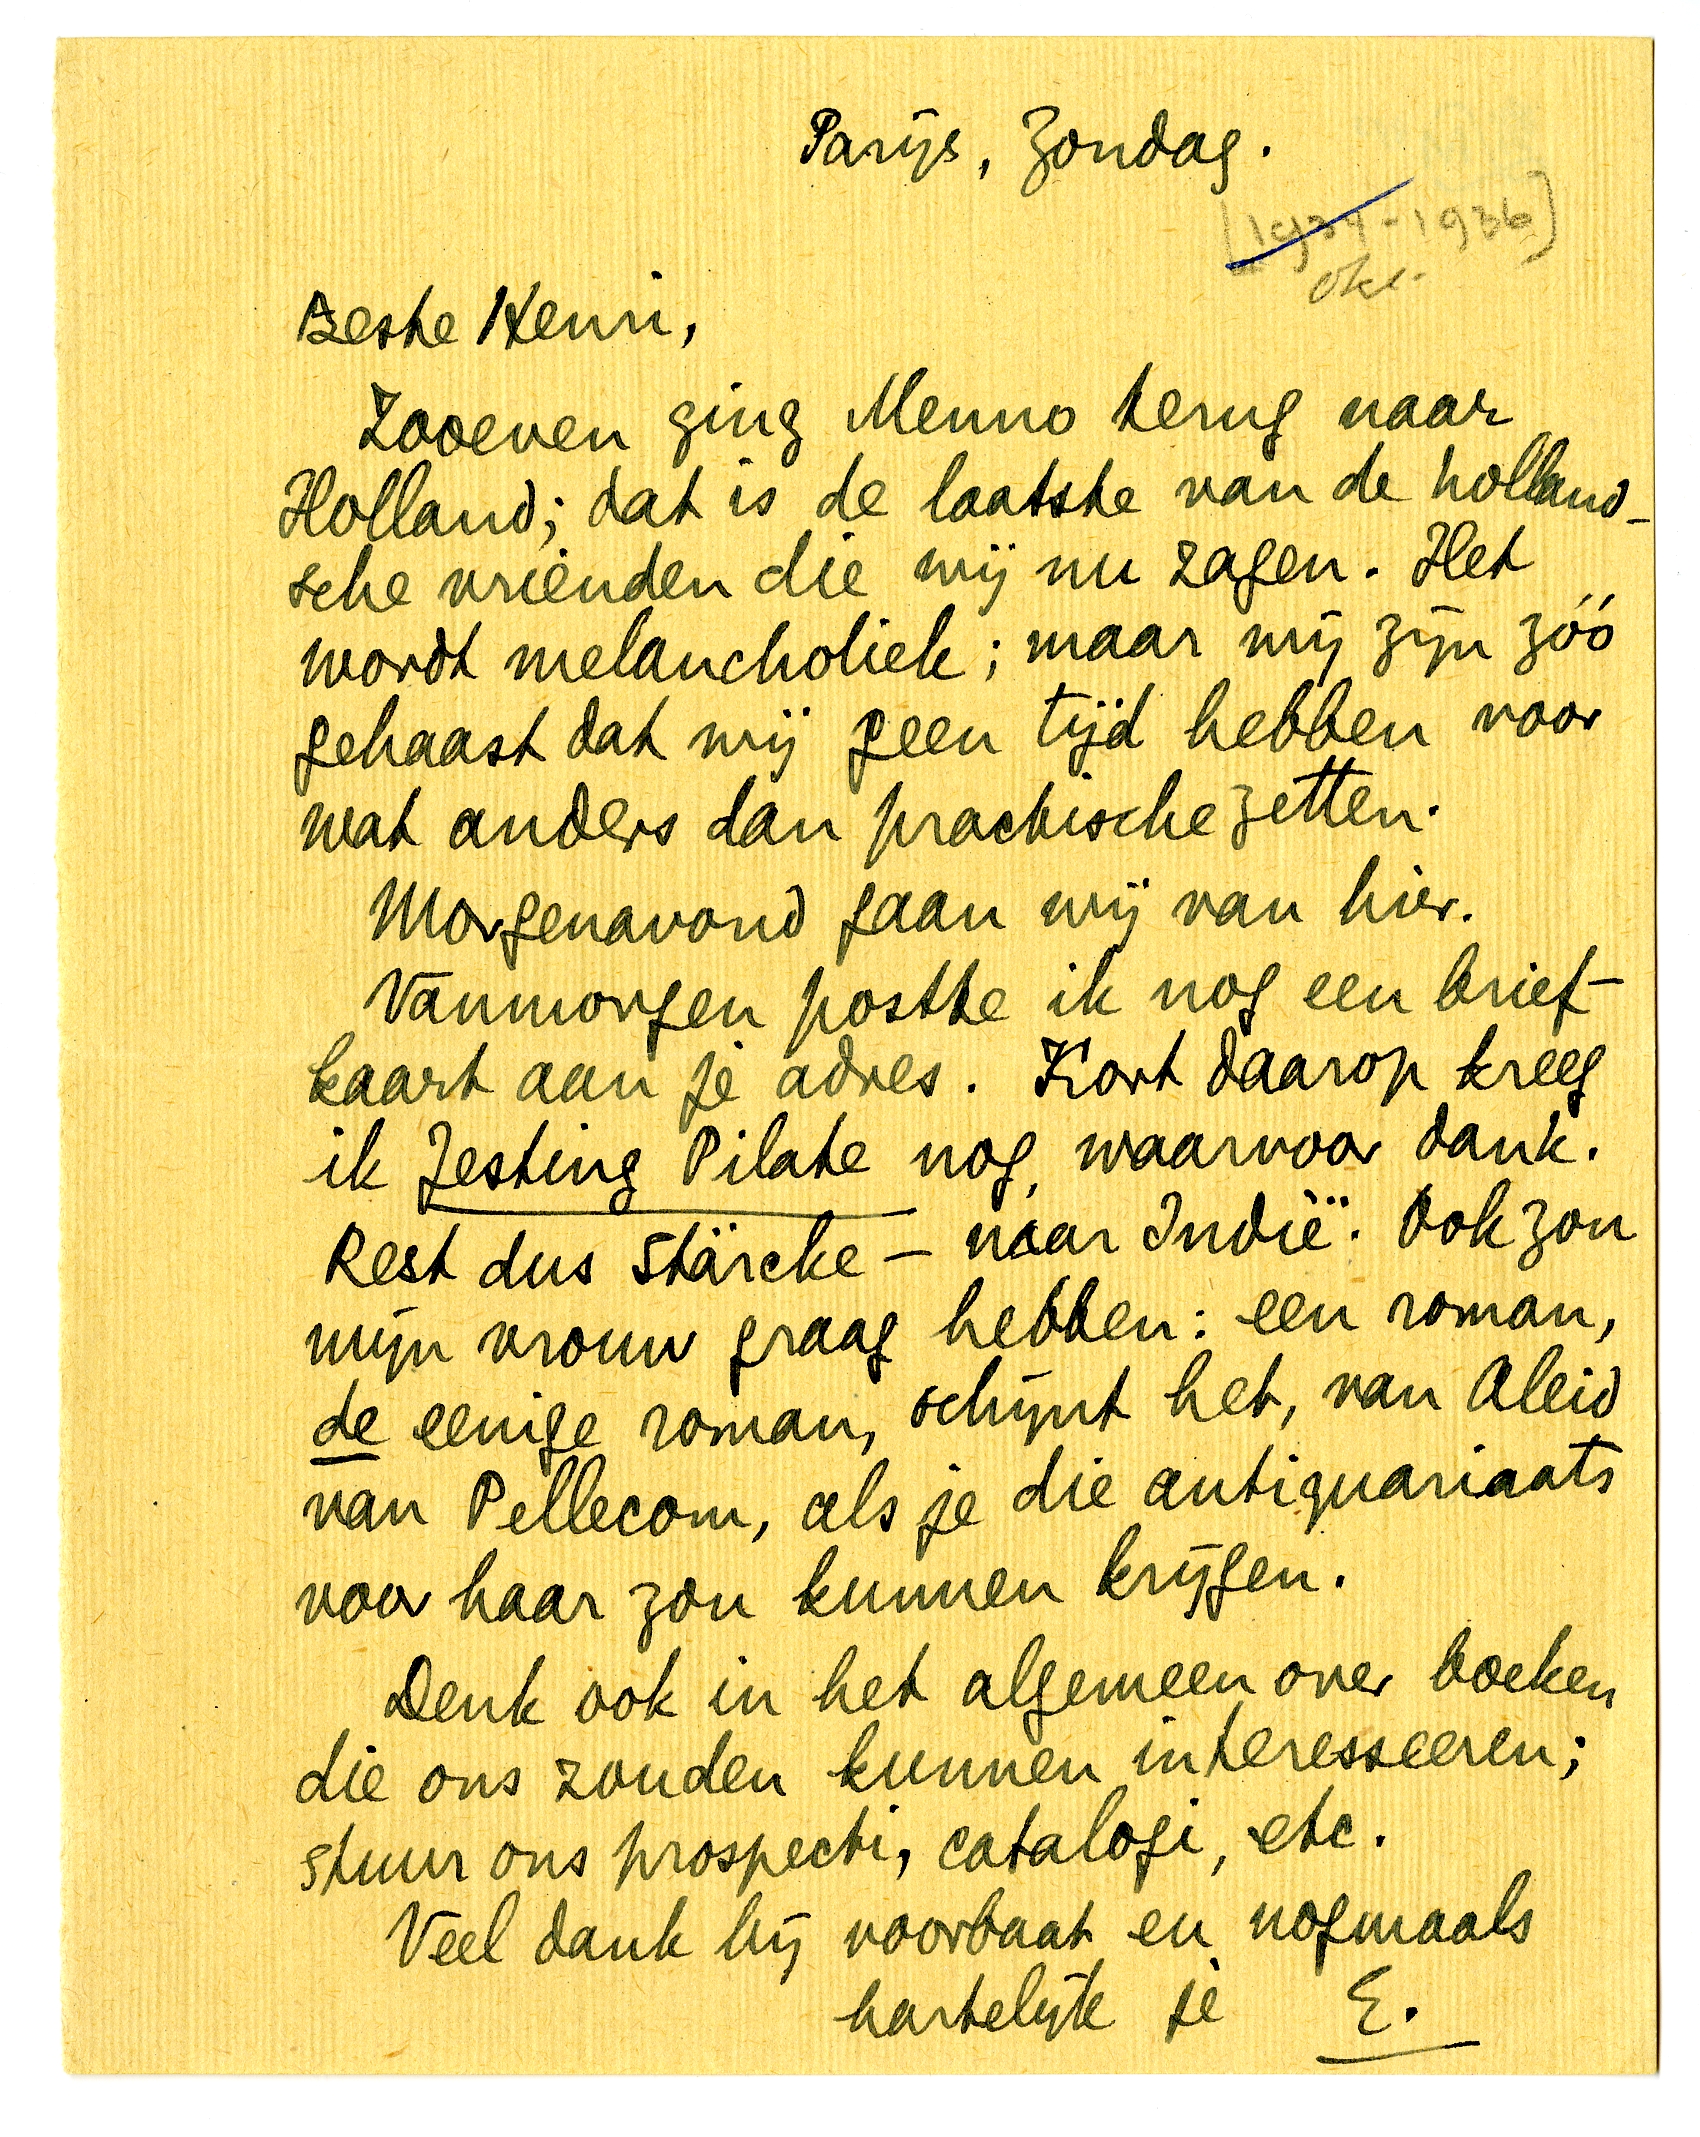 Parijs, Zondag.
[1934-1936]
okt.
Beste Henri,
Zooeven ging Menno terug naar
Holland; dat is de laatste van de holland-
sche vrienden die wij nu zagen. Het
wordt melancholiek; maar wij zijn zóó
gehaast dat wij geen tijd hebben voor
wat anders dan practische zetten.
Morgenavond gaan wij van hier.
Vanmorgen postte ik nog een brief-
kaart aan je adres. Kort daarop kreeg
ik Jesting Pilate nog, waarvoor dank.
Rest dus Stärcke – naar Indië. Ook zou
mijn vrouw graag hebben: een roman,
de eenige roman, schijnt het, van Aleid
van Pellecom, als je die antiquariaats
voor haar zou kunnen krijgen.
Denk ook in het algemeen over boeken
die ons zouden kunnen interesseeren;
stuur ons prospecti, catalogi, etc.
Veel dank bij voorbaat en nogmaals
hartelijk je E.